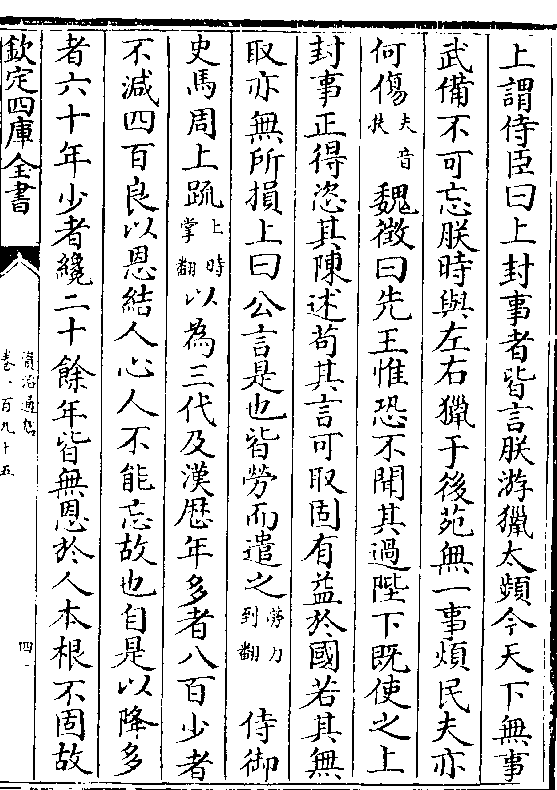 上謂侍臣曰上封事者皆言朕游獵太頻今天下無事
武備不可忘朕時與左右獵于後苑無一事煩民夫亦
何傷夫音扶魏徵曰先王惟恐不聞其過陛下既使之上
封事正得恣其陳述苟其言可取固有益於國若其無
取亦無所損上曰公言是也皆勞而遣之勞力到翻侍御
史馬周上疏上時掌翻以為三代及漢歴年多者八百少者
不減四百良以恩結人心人不能忘故也自是以降多
者六十年少者纔二十餘年皆無恩於人本根不固故
欽定四庫全書
資治通鑑
卷一百九十五
四